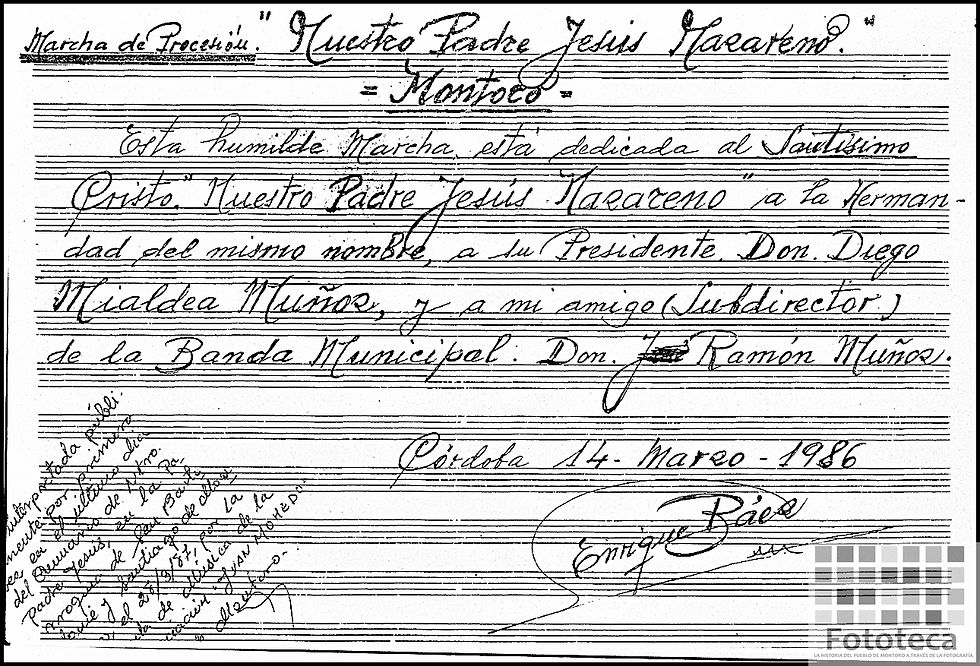 Marcha de Procesión. "Nuestro Padre Jesús Nazareno."
= Montoro =
Esta humilde Marcha, está dedicada al Santísimo
Cristo "Nuestro Padre Jesús Nazareno" a la Herman-
dad del mismo nombre, a su Presidente. Don. Diego
Mialdea Muñoz, y a mi amigo (Subdirector)
de la Banda Municipal. Don. Ramón Muñoz.
Córdoba 14 - Marzo - 1986
Enrique Báez
interpretada públi-
mente por primera
vez en el último día
del Quinario de Ntro.
Padre Jesús, en la Pa-
rroquia de San Barto-
lomé y Santiago de
el 28/3/87, por la
de Música de la
JUAN MOHEDO
Montoro.-
Fototeca
LA HISTORIA DEL PUEBLO DE MONTORO A TRAVÉS DE LA FOTOGRAFÍA